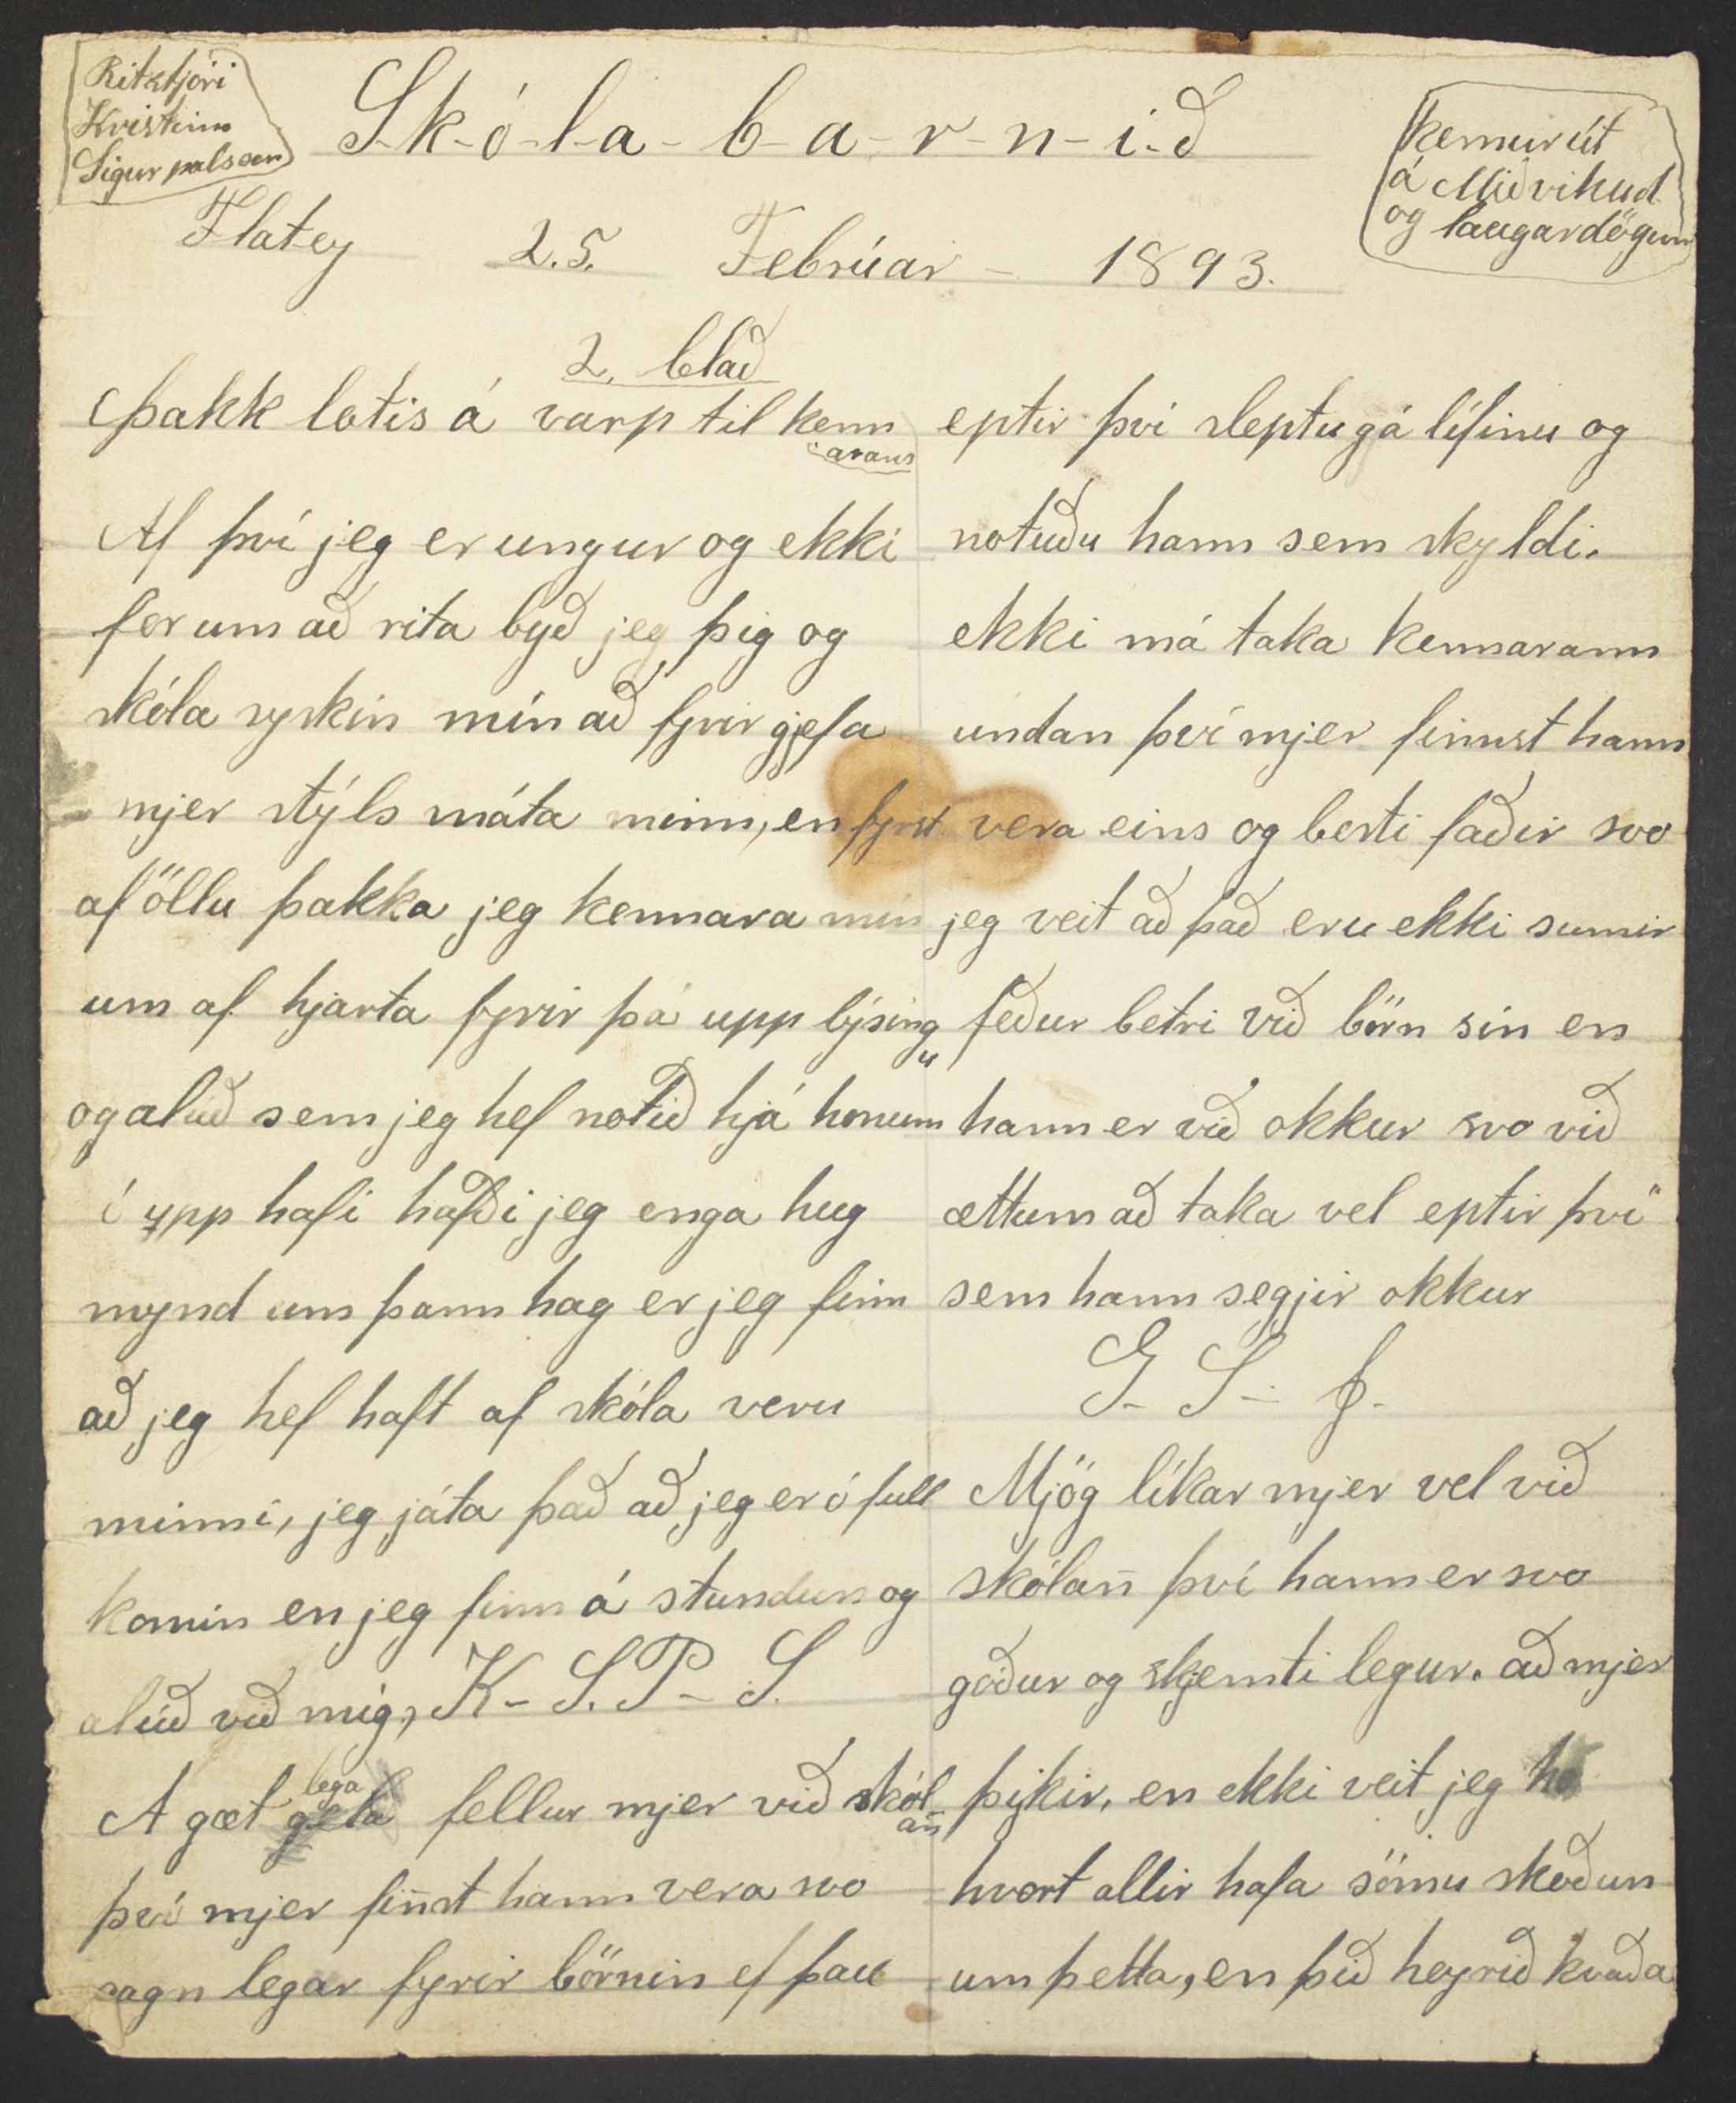 Ritstjóri
Kristinn
Sigurpalsson
S-k-ó-l-a-b-a-r-n-i-ð
kemur út
á Miðvikud
og laugardögum
Flatey 25. Febrúar - 1893.
2. blað
Þakk lætis á varp til kenn
arans
Af því jeg er ungur og ekki
fer um að rita byð jeg þig og
skóla syskin mín að fyrir gjefa
mjer stýls máta minn, en fyrst
af öllu þakka jeg kennara mín
um af hjarta fyrir þá upp lýsing
u
og alúð sem jeg hef notið hjá honum
í upp hafi hafði jeg enga hug
mynd um þann hag er jeg finn
að jeg hef haft af skóla veru
minni, jeg játa það að jeg er ó full
komin en jeg finn á stundun og
alúð við mig, K- S.P- S.
A gæt lega fellur mjer við skól
an̄
því mjer fin̄st hann vera svo
gagn legar fyrir börnin ef þau
eptir því sleptu gá lífinu og
notuðu hann sem skyldi.
ekki má taka kennarann
undan því mjer finnst hann
vera eins og besti faðir svo
jeg veit að það eru ekki sumir
feður betri við börn sín en
hann er við okkur svo við
ættum að taka vel eptir því
sem hann segjir okkur
G- S- J-
Mjög líkar mjer vel við
skólan̄ því hann er svo
góður og skjemti legur. að mjer
þikir, en ekki veit jeg
hvort allir hafa sömu skoðun
um þetta, en þið heyrið kvaða